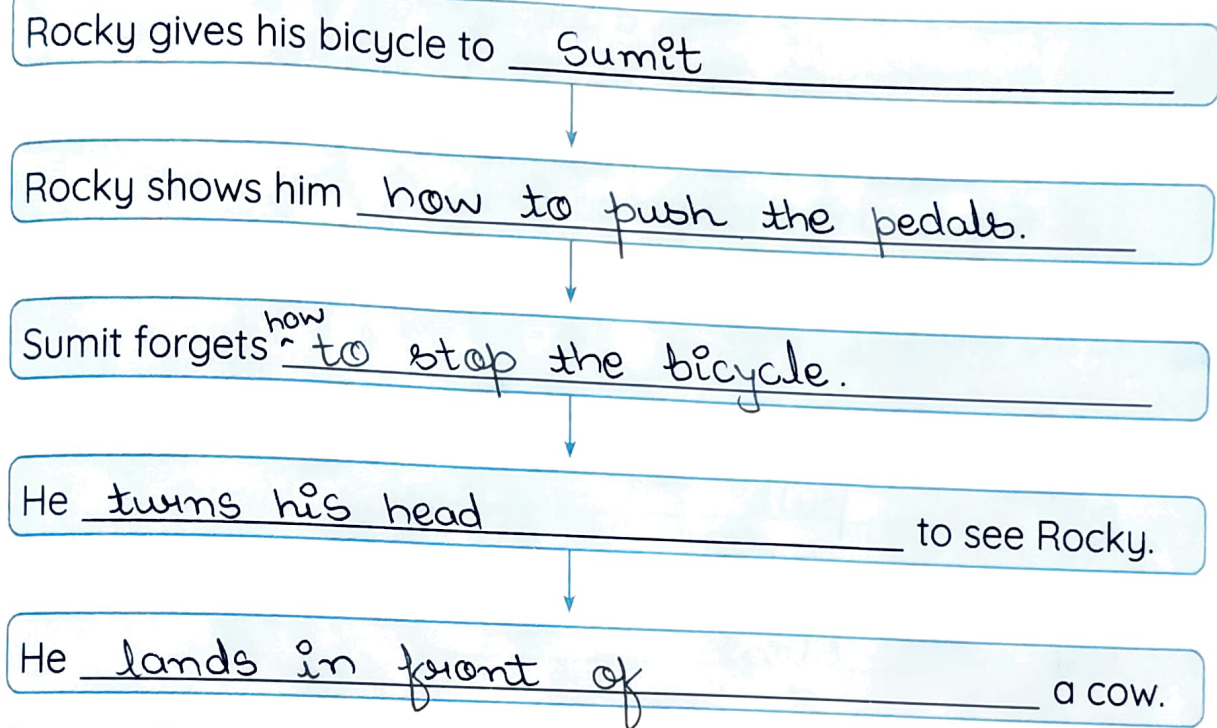 Rocky gives his bicycle to Sumit
Rocky shows him how to push the pedals.
Sumit forgets ^how to stop the bicycle.
He turns his head to see Rocky.
He lands in front of a cow.